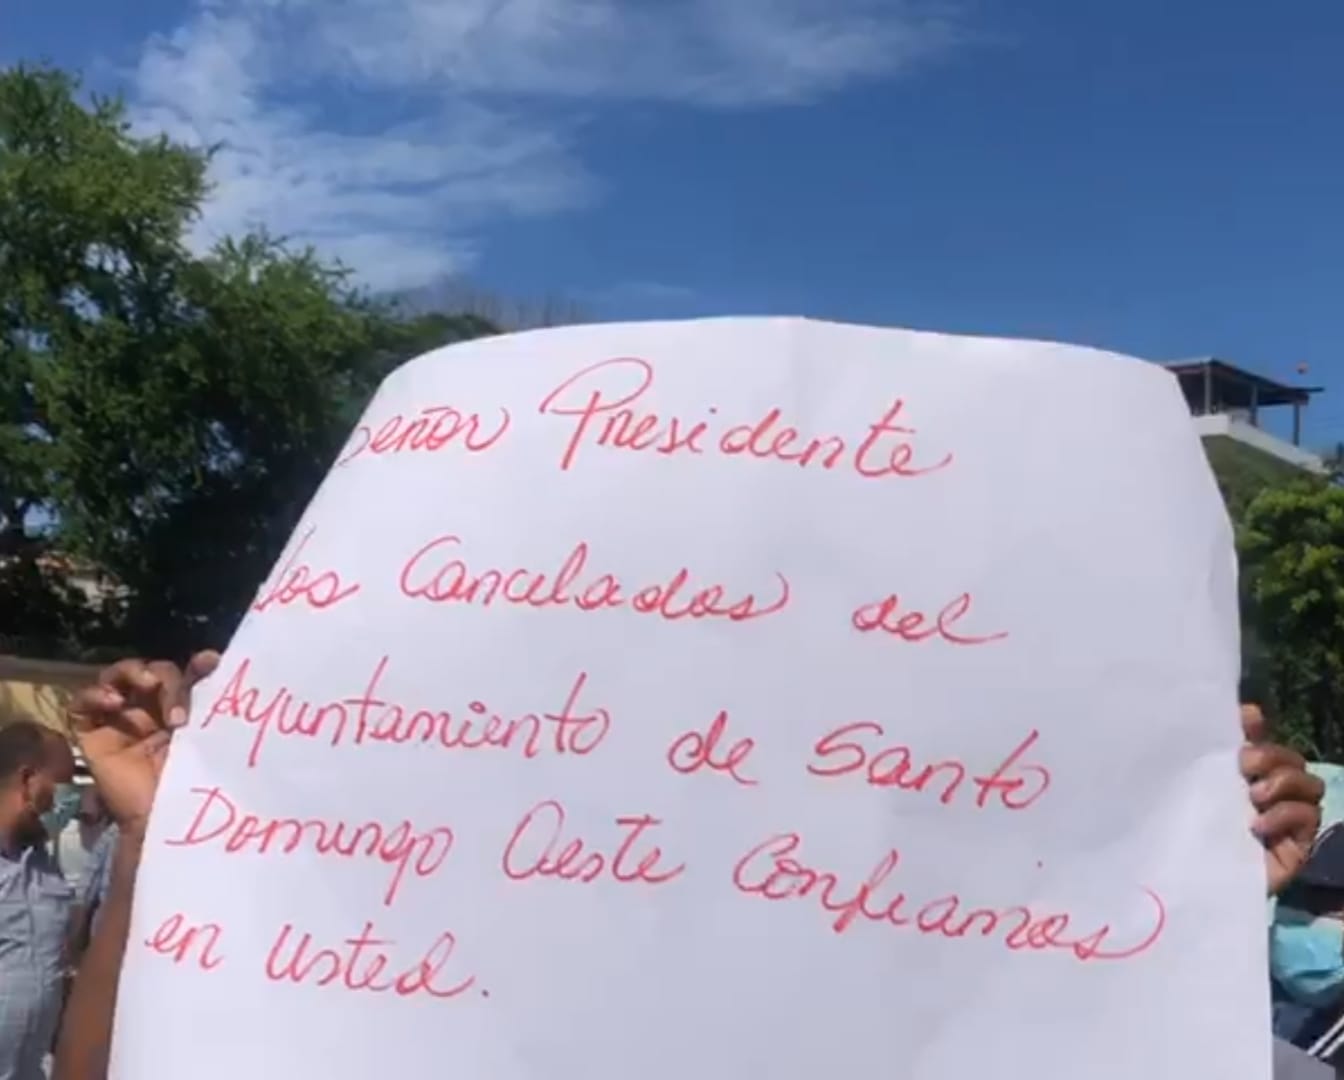 Señor Presidente
los Cancelados del
Ayuntamiento de Santo
Domingo Oeste Confiamos
en usted.